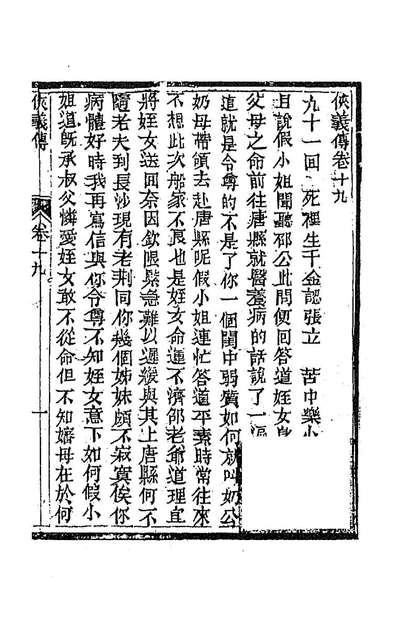 俠義傳卷十九
九十一回　死裡生千金認張立　苦中樂小
且說假小姐聞聽邵公此問便回答道姪女身
父母之命前往唐縣就醫養病的話說了一遍
道就是令尊的不是了你一個閨中弱質如何就叫奶公
奶母帶領去赴唐縣呢假小姐連忙答道平素時常往來
不想此次船家不良也是姪女命運不濟邵老爺道理宜
將姪女送回奈因欽限緊急難以遲緩與其上唐縣何不
隨老夫到長沙現有老荆同你幾個姊妹頗不寂寞俟你
病體好時我再寫信與你令尊不知姪女意下如何假小
姐道既承叔父憐愛姪女敢不從命但不知嬸母在於何
俠義傳　卷十九　一